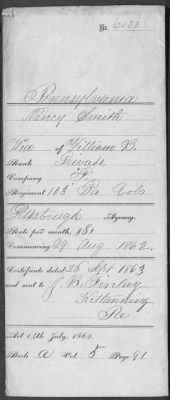 No. 6133
Pennsylvania
Nancy Smith
Wid of William B.
Rank Private
Company F.
Regiment 103 Pa Vols
Pittsburgh Agency.
Rate per month, $8
Commencing 29 Aug 1862
Certificate dated 25 Apl 1863
and sent to J. B. Finlay
Kittanning
Pa
Act 14th July, 1862.
Book A Vol. 5 Page 91